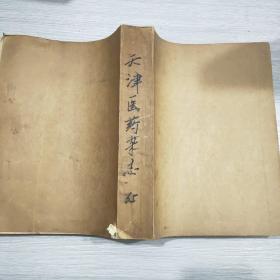 天津医药杂志 65